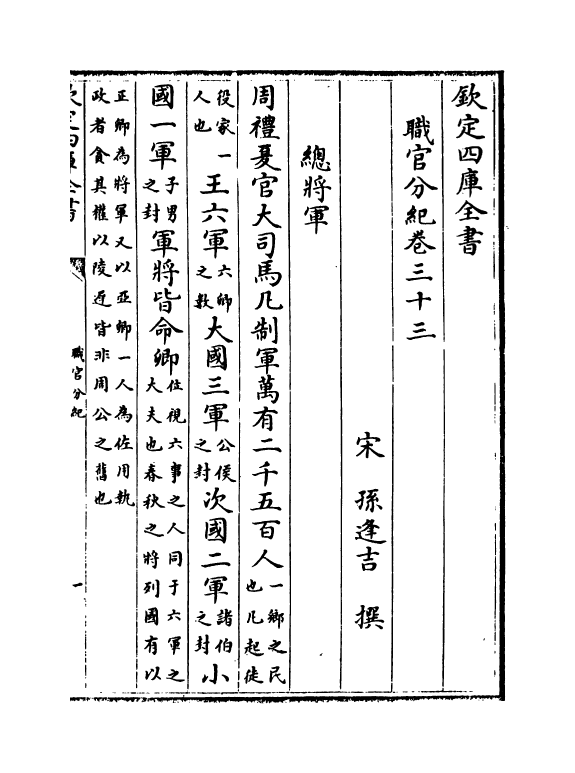 欽定四庫全書
職官分紀卷三十三
宋 孫逢吉 撰
總將軍
周禮夏官大司馬凡制軍萬有二千五百人一鄉之民也凡起徒
役家一人也王六軍六鄉之數大國三軍公侯之封次國二軍諸伯之封小
國一軍子男之封軍將皆命卿位視六事之人同于六軍之大夫也春秋之將列國有以
正卿為將軍又以亞卿一人為佐用執政者貪其權以陵近皆非周公之舊也
欽定四庫全書
職官分紀
一